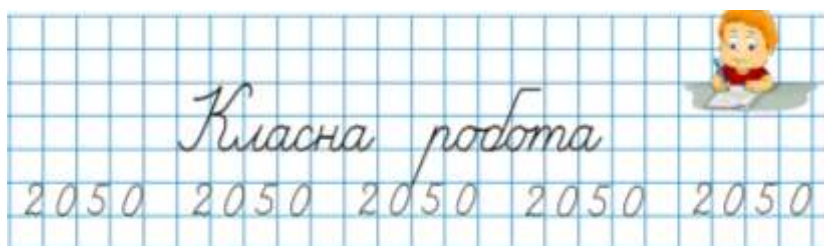 Класна робота
2050 2050 2050 2050 2050